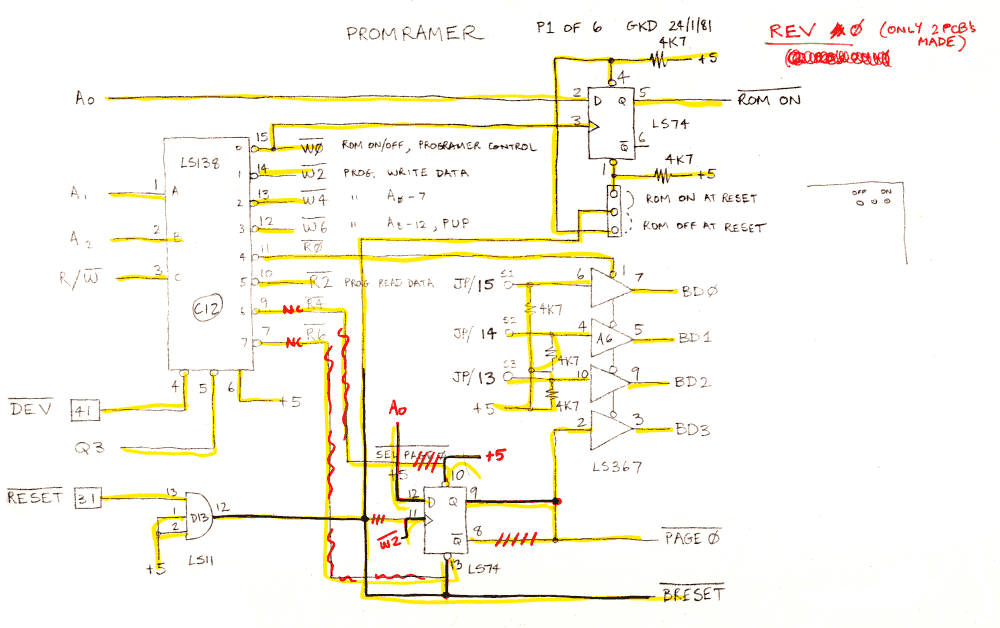 PROMRAMER P1 OF 6 GKD 24/1/81
REV 0 (ONLY 2 PCB's
MADE)
4K7
+5
4
A0
2 D Q 5
ROM ON
3
LS74
Q 6
1
4K7
+5
ROM ON AT RESET
ROM OFF AT RESET
OFF ON
LS138
0 15 W0 ROM ON/OFF, PROGRAMER CONTROL
1 14 W2 PROG. WRITE DATA
A1 1 A
2 13 W4 " A0-7
A2 2 B
3 12 W6 " A8-12, PUP
4 11 R0
R/W 3 C
5 10 R2 PROG READ DATA
C12
6 9 NC R4
7 7 NC R6
4 5 6
+5
DEV 41
Q3
JP/15 S1
4K7
6 1 7 BD0
JP/14 S2
4K7
4 A6 5 BD1
JP/13 S3
4K7
10 9 BD2
+5
2 3 BD3
LS367
A0
SEL PAGE
+5
+5
10
12 D Q 9
11
W2
Q 8
PAGE 0
13
LS74
RESET 31
13
1
2
D13 12
+5
LS11
BRESET